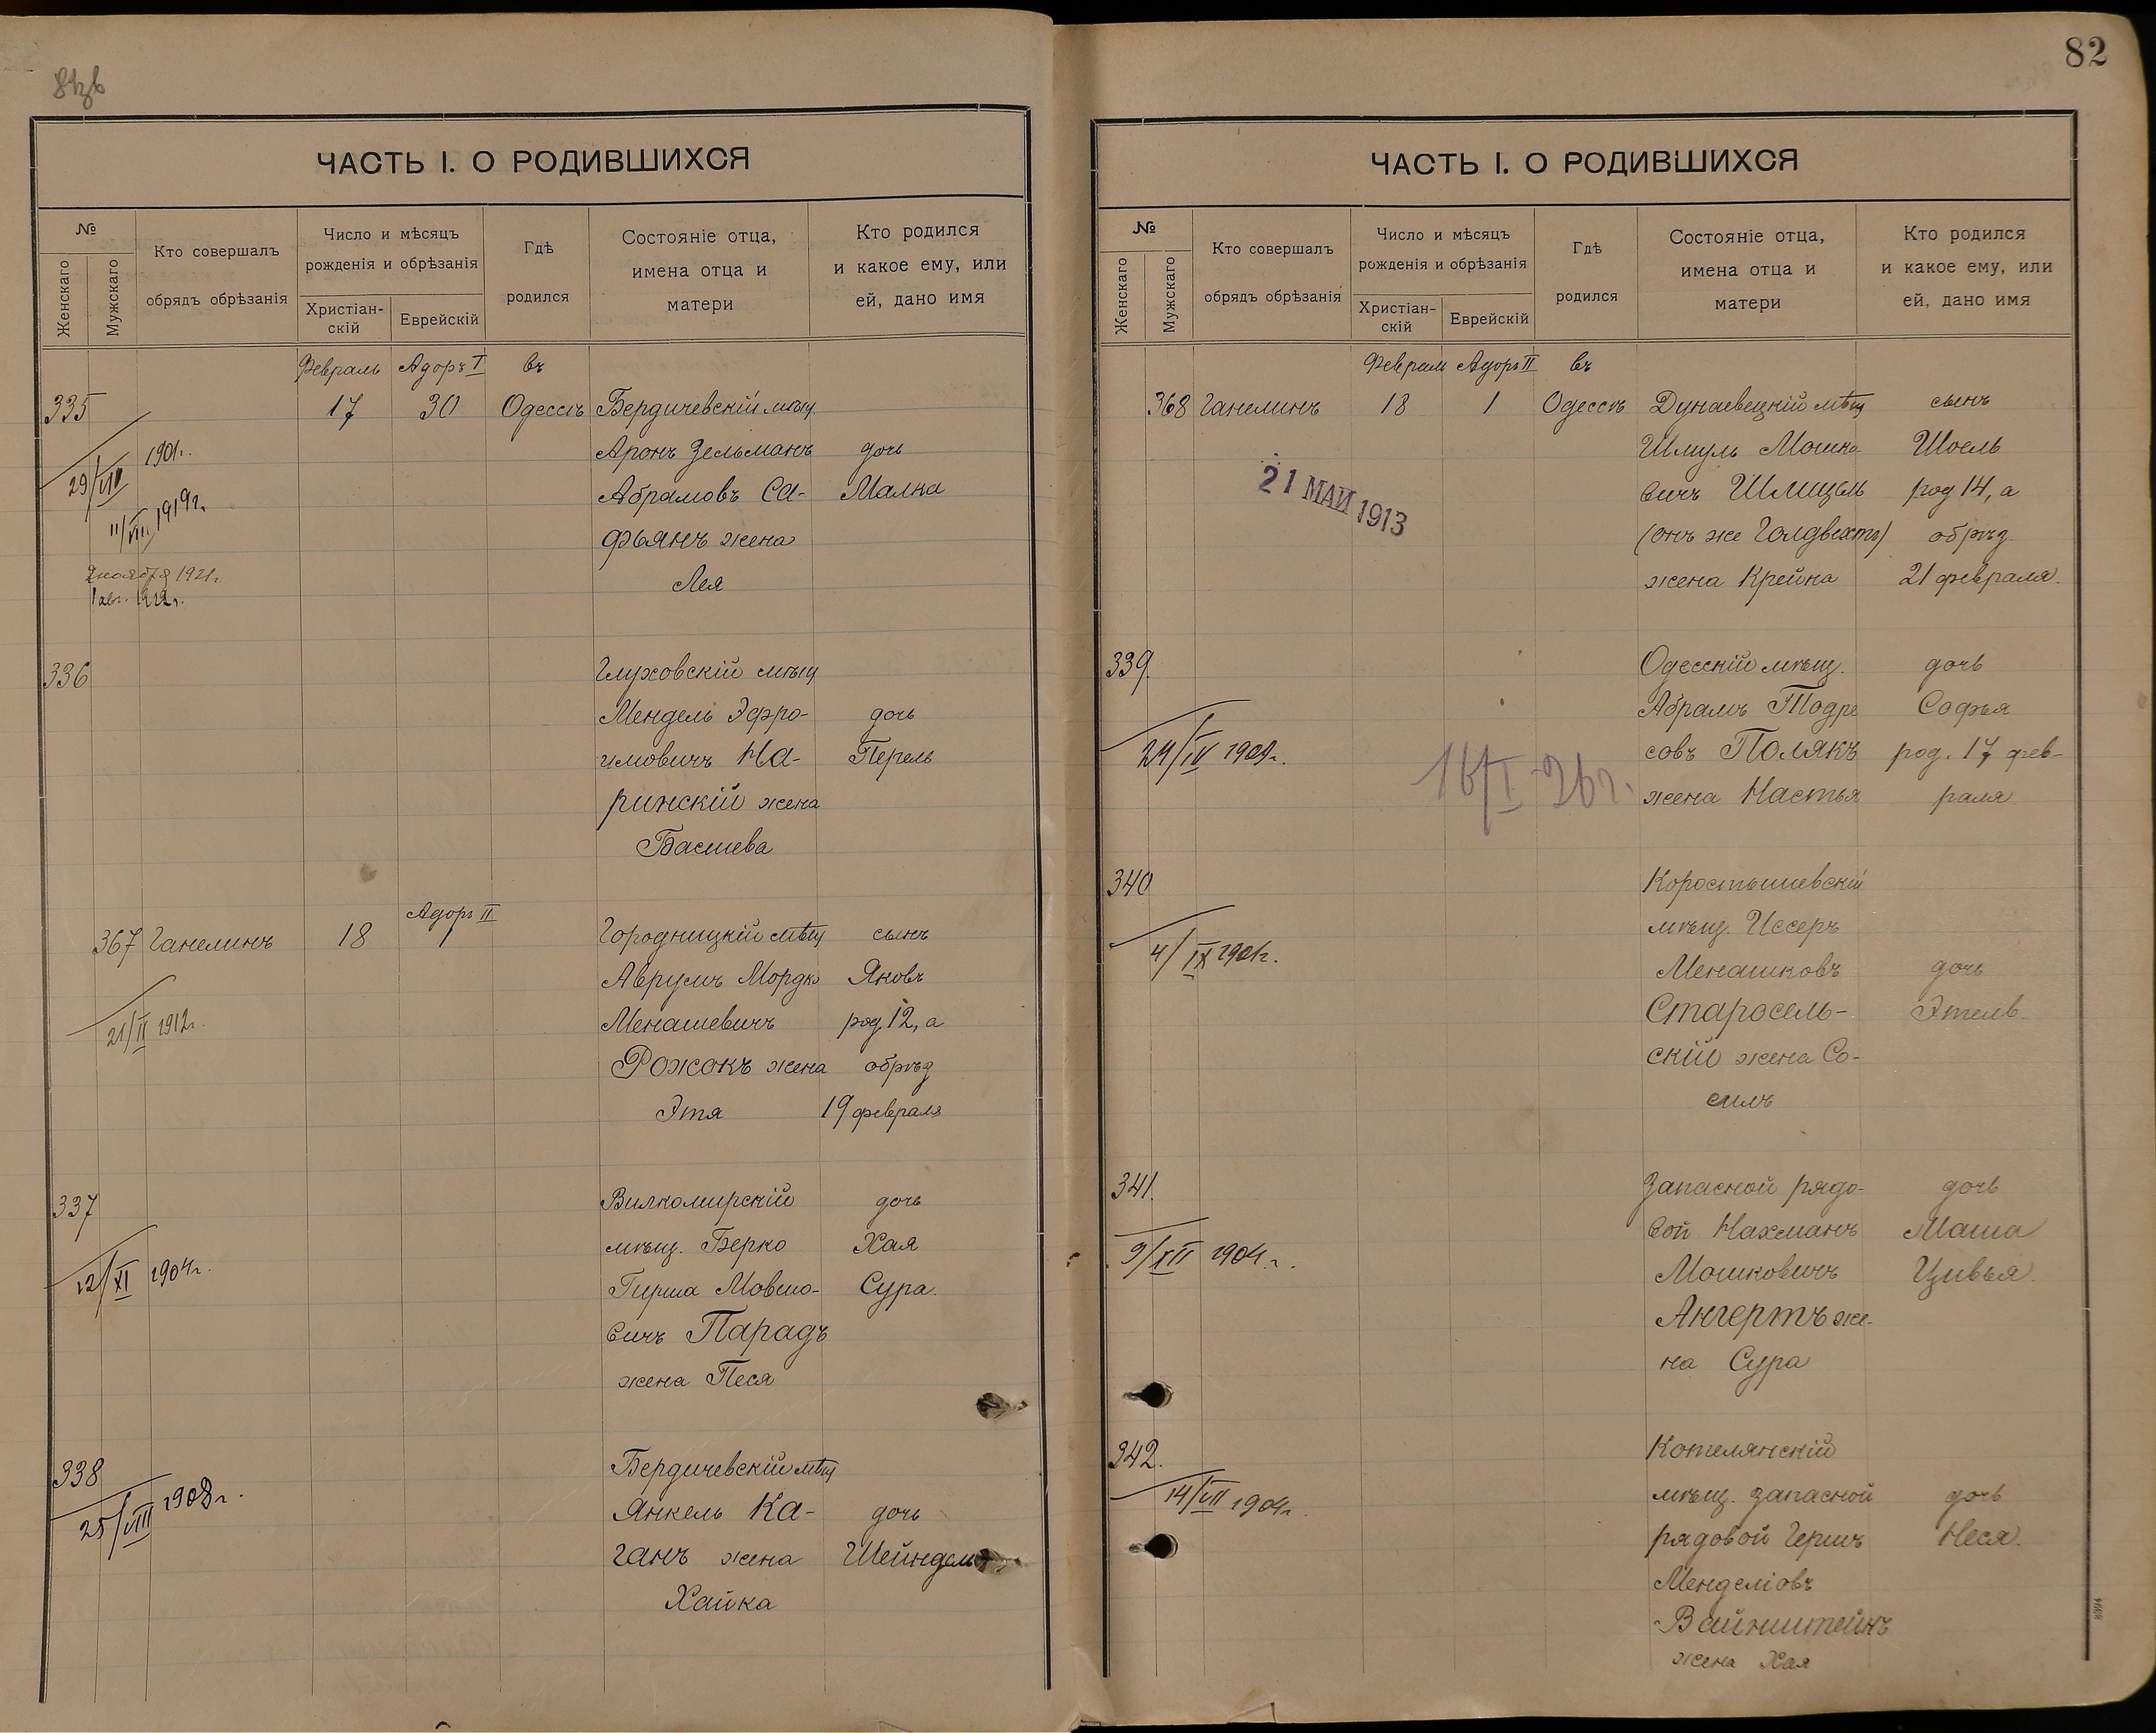 ЧАСТЬ I. О РОДИВШИХСЯ
№
Женскаго
Мужскаго
Кто совершалъ
обрядъ обрѣзанія
Число и мѣсяцъ
рожденія и обрѣзанія
Христіан-
скій
Еврейскій
Гдѣ
родился
Состояніе отца,
имена отца и
матери
Кто родился
и какое ему, или
ей, дано имя
Февраль Адоръ I въ
335 17 30 Одессѣ Бердичевскій мѣщ.
Аронъ Зельманъ дочь
Абрамовъ Са- Малка
фьянъ жена
Лея
29/VIII 1901г.
11/VII 1919г.
2 ноября 1921г.
1 авг. 1922г.
336 Глуховскій мѣщ
Мендель Эфро- дочь
имовичъ На- Перель
ринскій жена
Басшева
Адоръ II
367 Ганелинъ 18 1 Городницкій мѣщ сынъ
Аврумъ Мордко Яковъ
Менашевичъ род 12, а
Рожокъ жена обрѣз
Этя 19 февраля
21/II 1912г.
337 Вилкомирскій дочь
мѣщ. Берко Хая
Гирша Мовшо- Сура.
вичъ Парадъ
жена Песя
12/XI 1904г.
338 Бердичевскій мѣщ
Янкель Ка- дочь
ганъ жена Шейндель
Хайка
25/VIII 1908г.
82
ЧАСТЬ I. О РОДИВШИХСЯ
№
Женскаго
Мужскаго
Кто совершалъ
обрядъ обрѣзанія
Число и мѣсяцъ
рожденія и обрѣзанія
Христіан-
скій
Еврейскій
Гдѣ
родился
Состояніе отца,
имена отца и
матери
Кто родился
и какое ему, или
ей, дано имя
Феврал Адоръ II въ
368 Ганелинъ 18 1 Одессѣ Дунаевецкій мѣщ сынъ
Шмуль Мошко- Шоель
вичъ Шмицель род 14, а
(онъ же Голдвехтъ) обрѣз.
жена Крейна 21 февраля.
21 МАЙ 1913
339. Одесскій мѣщ. дочь
Абрамъ Тодре Софья
совъ Полякъ род. 17 фев-
жена Настья раля
24/IV 1909г.
16/I 26г.
340 Коростышевскій
мѣщ. Иссеръ
Менашковъ дочь
Старосель- Этель.
скій жена Со-
силъ
4/IX 1901г.
341. Запасной рядо- дочь
вой Нахманъ Маша
Мошковичъ Цивья.
Ангертъ же-
на Сура
9/XII 1904г.
342. Котелянскій
мѣщ. запасной дочь
рядовой Гершъ Неся.
Менделіовъ
Вайнштейнъ
жена Хая
14/VII 1904г.